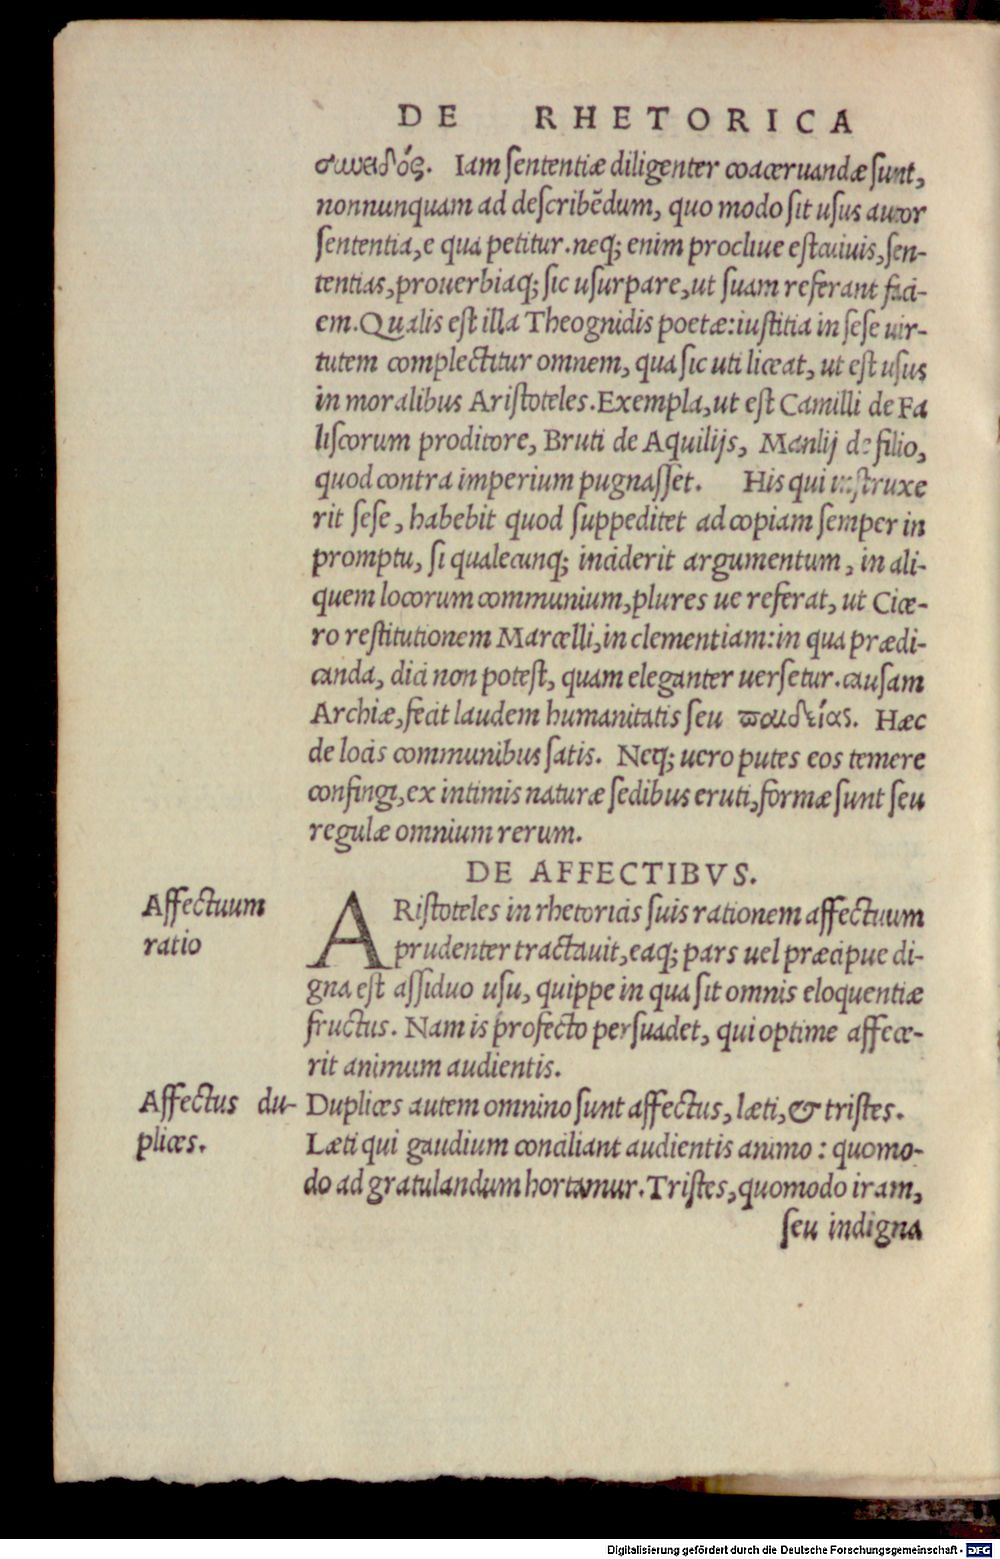 DE RHETORICA
συνειδός. Iam sententiæ diligenter coaceruandæ sunt,
nonnunquam ad describēdum, quo modo sit usus autor
sententia, e qua petitur. neq; enim procliue est cuiuis, sen-
tentias, prouerbiaq; sic usurpare, ut suam referant faci-
em. Qualis est illa Theognidis poetæ: iustitia in sese uir-
tutem complectitur omnem, qua sic uti liceat, ut est usus
in moralibus Aristoteles. Exempla, ut est Camilli de Fa
liscorum proditore, Bruti de Aquilijs, Manlij de filio,
quod contra imperium pugnasset. His qui instruxe
rit sese, habebit quod suppeditet ad copiam semper in
promptu, si qualecunq; inciderit argumentum, in ali-
quem locorum communium, plures ue referat, ut Cice-
ro restitutionem Marcelli, in clementiam: in qua prædi-
canda, dici non potest, quam eleganter uersetur. causam
Archiæ, fecit laudem humanitatis seu παιδείας. Hæc
de locis communibus satis. Neq; uero putes eos temere
confingi, ex intimis naturæ sedibus eruti, formæ sunt seu
regulæ omnium rerum.
DE AFFECTIBVS.
Affectuum
ratio
ARistoteles in rhetoricis suis rationem affectuum
prudenter tractauit, eaq; pars uel præcipue di-
gna est assiduo usu, quippe in qua sit omnis eloquentiæ
fructus. Nam is profecto persuadet, qui optime affece-
rit animum audientis.
Affectus du-
plices.
Duplices autem omnino sunt affectus, læti, & tristes.
Læti qui gaudium conciliant audientis animo : quomo-
do ad gratulandum hortamur. Tristes, quomodo iram,
seu indigna
Digitalisierung gefördert durch die Deutsche Forschungsgemeinschaft - DFG